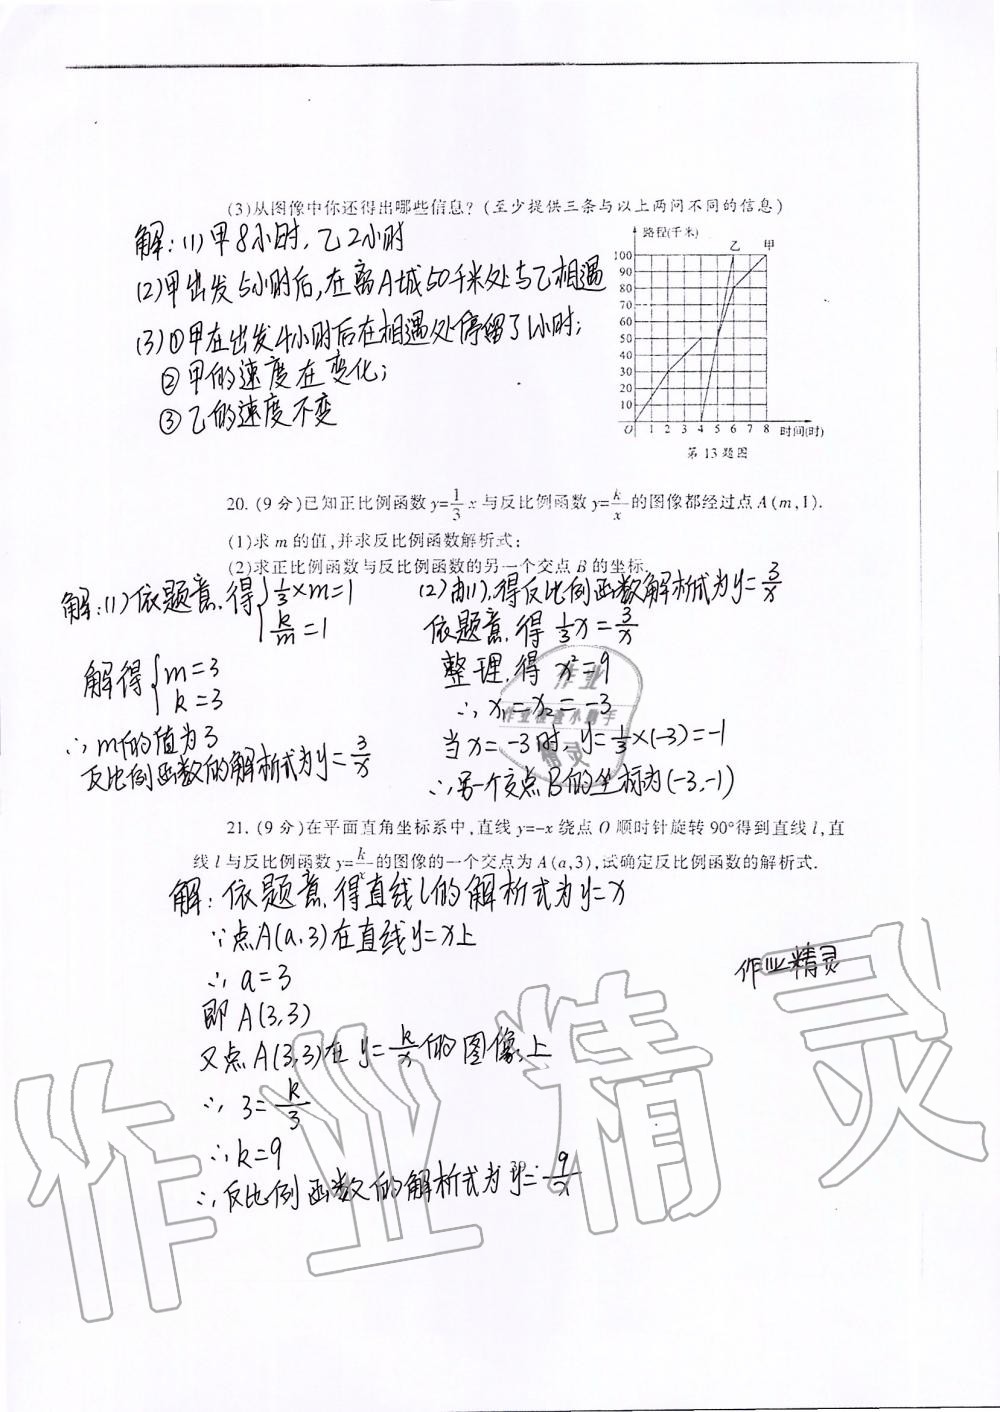 (3)从图像中你还得出哪些信息？(至少提供三条与以上两问不同的信息)
解：(1)甲8小时，乙2小时
(2)甲出发5小时后，在离A城50千米处与乙相遇
(3)①甲在出发4小时后在相遇处停留了1小时；
②甲的速度在变化；
③乙的速度不变
路程(千米)
乙 甲
100
90
80
70
60
50
40
30
20
10
O 1 2 3 4 5 6 7 8 时间(时)
第13题图
20. (9分)已知正比例函数y=1/3 x与反比例函数y=k/x的图像都经过点A(m,1).
(1)求m的值,并求反比例函数解析式;
(2)求正比例函数与反比例函数的另一个交点B的坐标.
解:(1)依题意,得{1/3×m=1
k/m=1
解得{m=3
k=3
∴m的值为3
反比例函数的解析式为y=3/x
(2)由(1),得反比例函数解析式为y=3/x
依题意,得 1/3x=3/x
整理,得 x²=9
∴x₁=x₂=-3
当x=-3时,y=1/3×(-3)=-1
∴另一个交点B的坐标为(-3,-1)
21. (9分)在平面直角坐标系中,直线y=-x绕点O顺时针旋转90°得到直线l,直
线l与反比例函数y=k/x的图像的一个交点为A(a,3),试确定反比例函数的解析式.
解:依题意,得直线l的解析式为y=x
∵点A(a,3)在直线y=x上
∴a=3
即A(3,3)
又点A(3,3)在y=k/x的图像上
∴3=k/3
∴k=9
∴反比例函数的解析式为y=9/x
作业精灵
作业
作业检查小助手
精灵
作业精灵